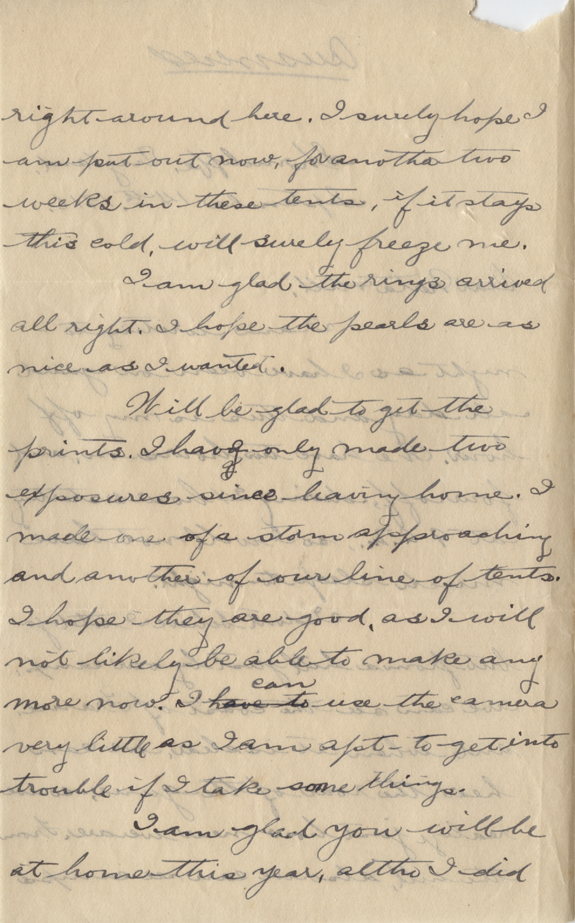 right around here. I surely hope I
am put out now, for anotha two
weeks in these tents, if it stays
this cold, will surely freeze me.
I am glad the rings arrived
all right. I hope the pearls are as
nice as I wanted.
Will be glad to get the
prints. I have only made two
exposures since leaving home. I
made one of a storm approaching
and another of our line of tents.
I hope they are good, as I will
not likely be able to make any
can
more now. I have to use the camera
very little as I am apt to get into
trouble if I take some things.
I am glad you will be
at home this year, altho I did